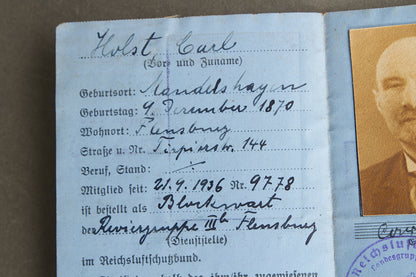 Holst, Carl
(Vor- und Zuname)
Geburtsort: Mandelshagen
Geburtstag: 9. Dezember 1870
Wohnort: Flensburg
Straße u. Nr. Tirpitzstr. 144
Beruf, Stand:
Mitglied seit: 21.4.1936 Nr. 9778
ist bestellt als Blockwart
der Reviergruppe IIIb Flensburg
(Dienststelle)
im Reichsluftschutzbund.
Reichsluft
Landesgrup